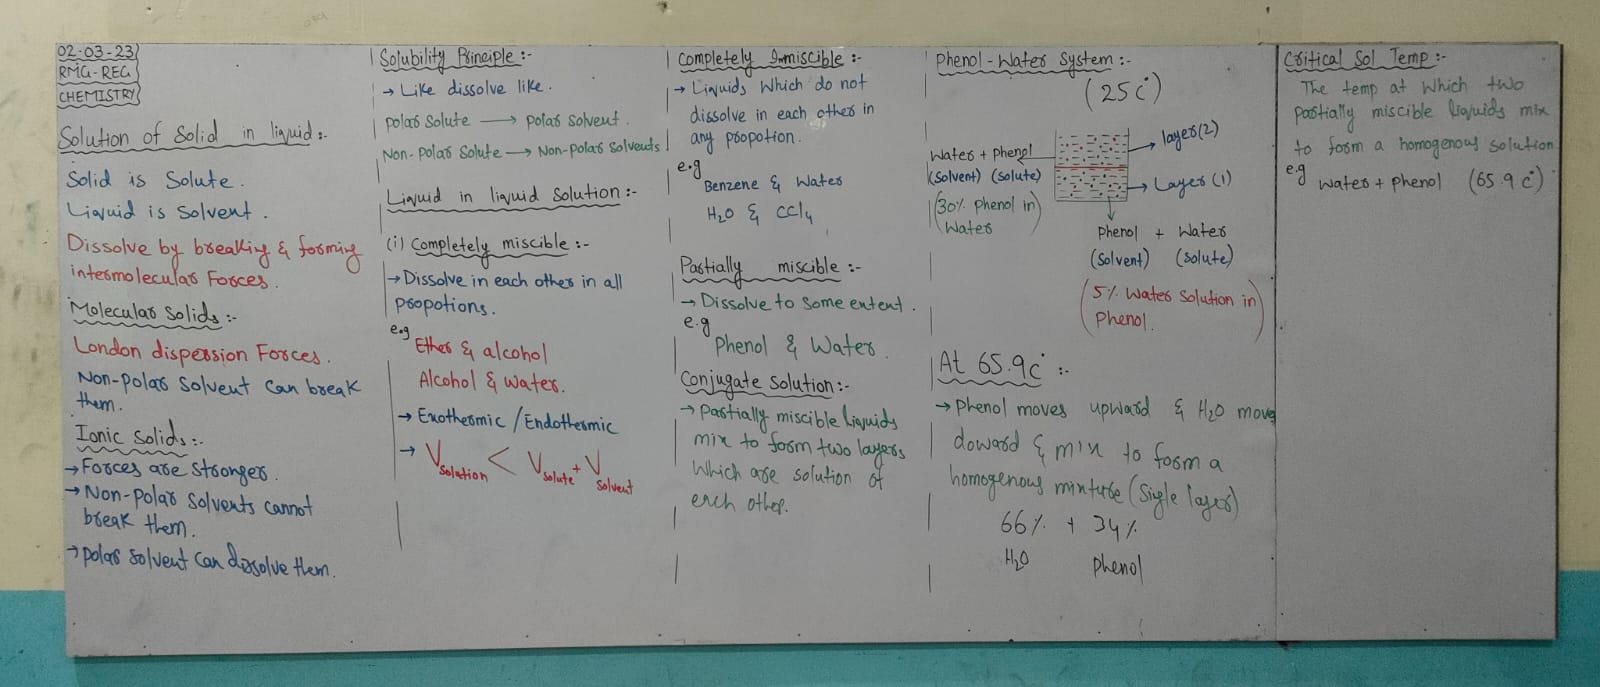 02-03-23
RMG-REG
CHEMISTRY
Solution of Solid in liquid:-
Solid is Solute.
Liquid is Solvent.
Dissolve by breaking & forming
intermolecular Forces.
Molecular Solids:-
London dispersion Forces.
Non-polar Solvent can break
them.
Ionic Solids:-
→ Forces are Stronger.
→ Non-Polar Solvents cannot
break them.
→ polar solvent can dissolve them.
Solubility Principle:-
→ Like dissolve like.
polar Solute → polar Solvent.
Non-polar Solute → Non-polar Solvents
Liquid in liquid Solution:-
(i) Completely miscible:-
→ Dissolve in each other in all
propotions.
e.g
Ether & alcohol
Alcohol & water.
→ Exothermic / Endothermic
→ Vsolution < Vsolute + Vsolvent
Completely Immiscible:-
→ Liquids Which do not
dissolve in each other in
any propotion.
e.g
Benzene & Water
H₂O & CCl₄
Partially miscible:-
→ Dissolve to Some extent.
e.g
Phenol & Water.
Conjugate Solution:-
→ Partially miscible Liquids
mix to form two layers
Which are solution of
each other.
Phenol-Water System:-
(25c°)
layer(2)
Water + Phenol
(Solvent) (Solute)
Layer(1)
(30% Phenol in
Water)
Phenol + Water
(Solvent) (Solute)
(5% Water Solution in
Phenol.)
At 65.9c° :-
→ Phenol moves upward & H₂O moves
doward & mix to form a
homogenous mixture (Sigle layer)
66% + 34%
H₂O Phenol
Critical Sol Temp:-
The temp at Which two
partially miscible liquids mix
to form a homogenous solution
e.g Water + Phenol (65.9c°)